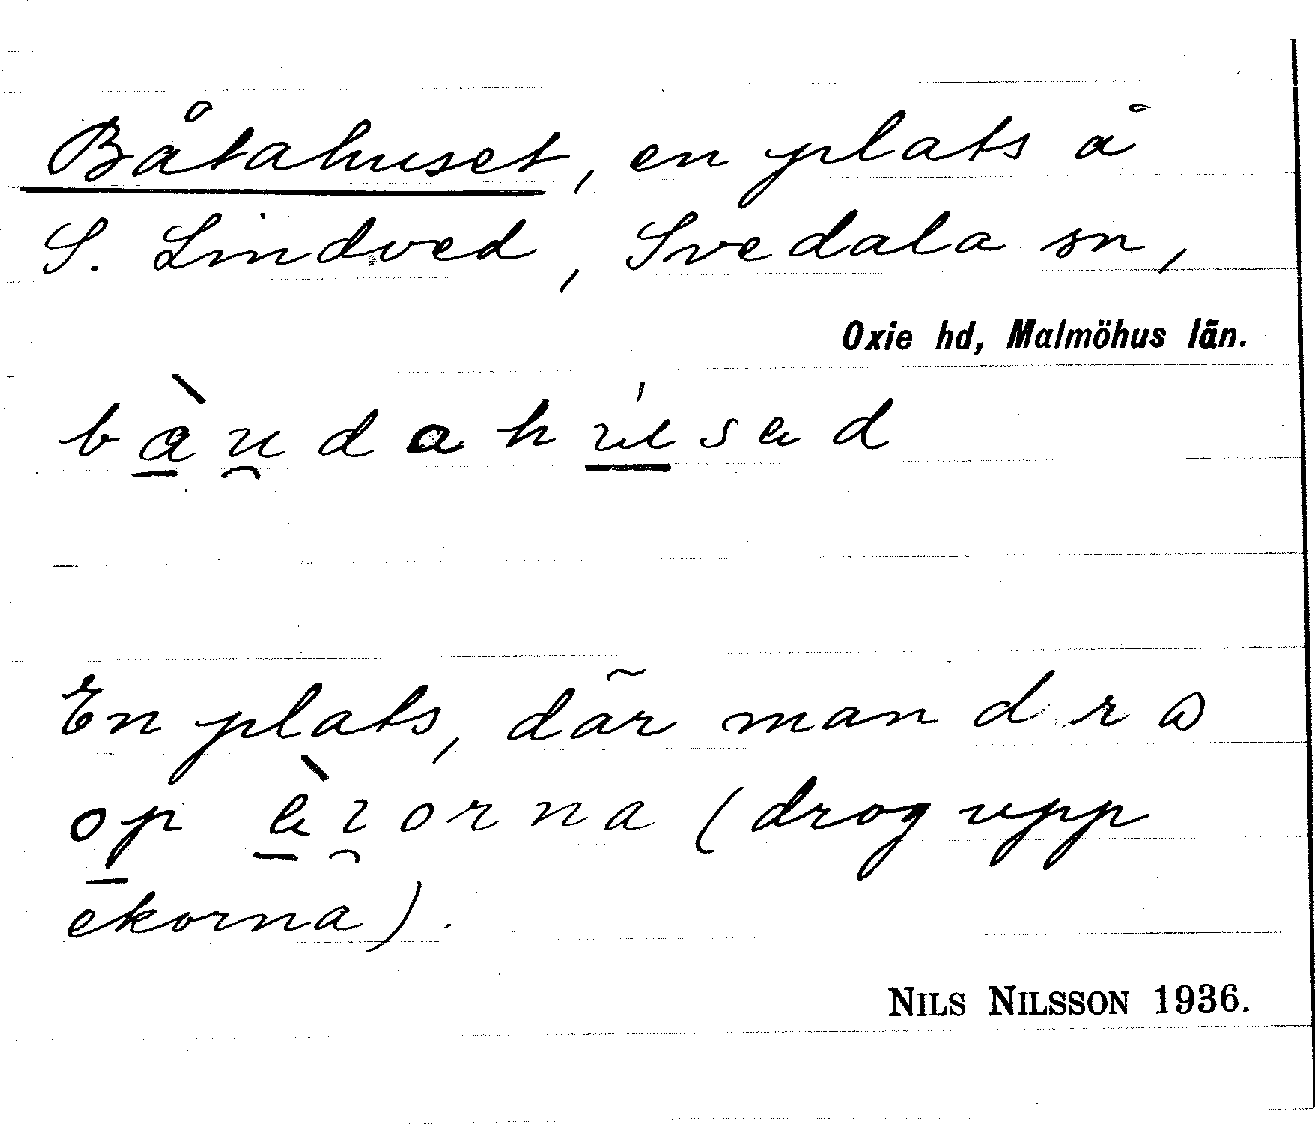 Båtahuset, en plats å
S. Lindved, Svedala sn,
Oxie hd, Malmöhus län.
bàu̯dahúsəd
En plats, där man drɷ
op èɿorna (drog upp
ekorna).
NILS NILSSON 1936.